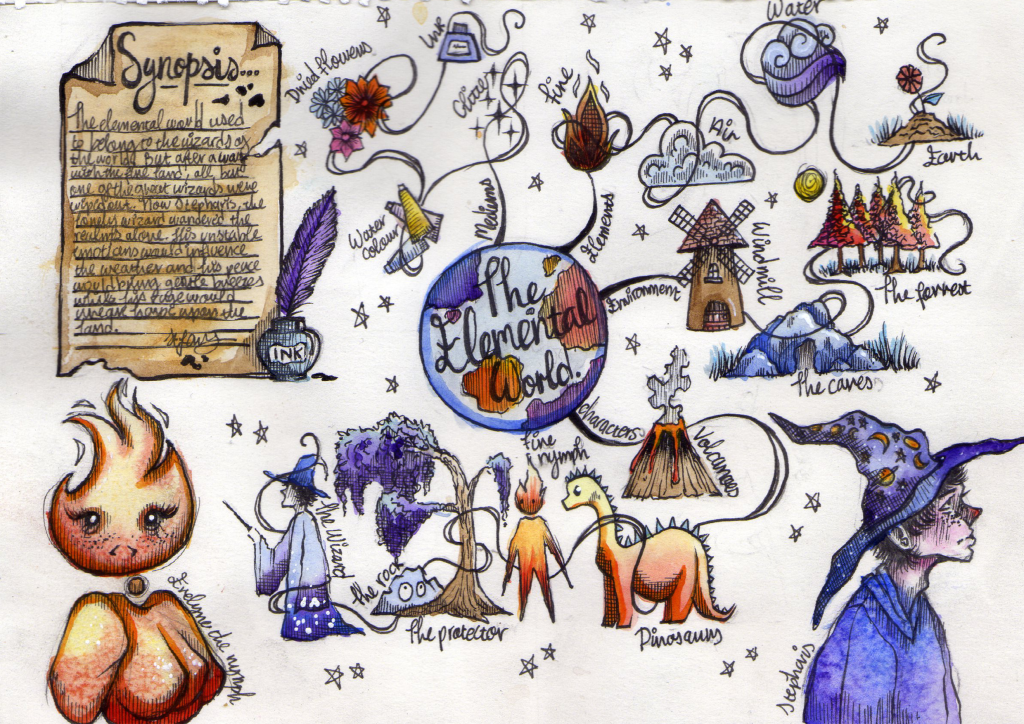 Synopsis...
The elemental world used
to belong to the wizards of
the world. But after a war
with the fire land, all but
one of the great wizards were
wiped out. Now Stepharis, the
lonely wizard wandered the
realms alone. His unstable
emotions would influence
the weather and his peace
would bring gentle breezes
while his rage would
wreak havoc upon the
land.
INK
Dried flowers
Ink
Glitter
Water
colour
Mediums
Fire
Air
Water
Earth
Elements
The
Elemental
World.
Environment
Windmill
The forrest
The caves
Characters
Volcanoes
Fire
nymph
The Wizard
The rock
The protector
Dinosaurs
Evelyne de nymph
Stepharis